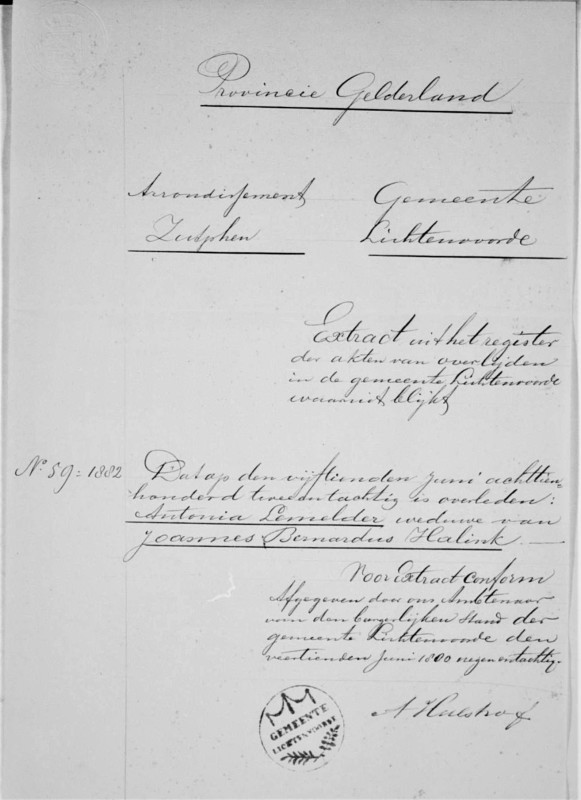 Provincie Gelderland
Arrondissement Gemeente
Zutphen Lichtenvoorde
Extract uit het register
der akten van overlijden
in de gemeente Lichtenvoorde
waaruit blijkt
No. 59 = 1882 Dat op den vijftienden juni achttien=
honderd tweeentachtig is overleden:
Antonia Lemelder weduwe van
Joannes Bernardus Halink. —
Voor Extract Conform
Afgegeven door ons Ambtenaar
van den burgerlijken Stand der
gemeente Lichtenvoorde den
veertienden Juni 1800 negenentachtig.
A Hulshof
GEMEENTE
LICHTENVOORDE